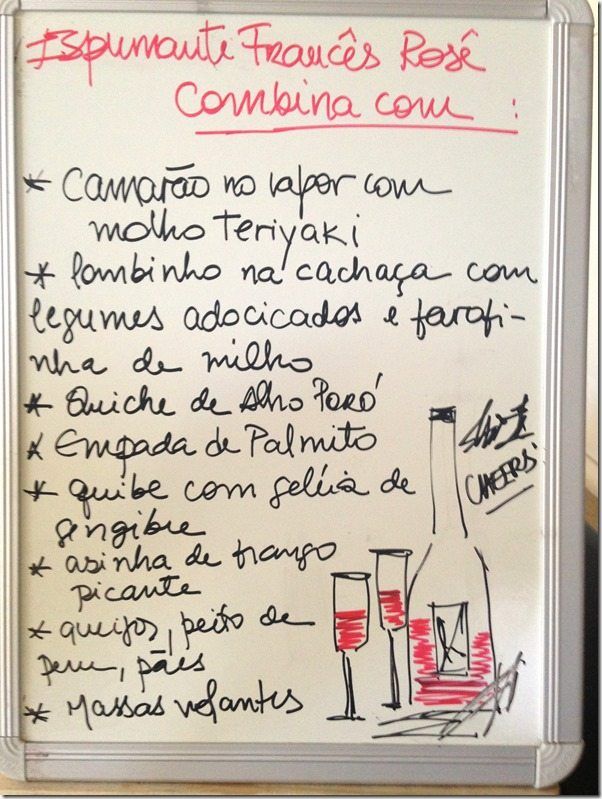 Espumante Francês Rosê
Combina com :
* Camarão no vapor com
molho Teriyaki
* lombinho na cachaça com
legumes adocicados e farofi-
nha de milho
* Quiche de Alho Poró
* Empada de Palmito
* quibe com geléia de
gengibre
* asinha de frango
picante
* queijos, peito de
peru, pães
* Massas
CHEERS!